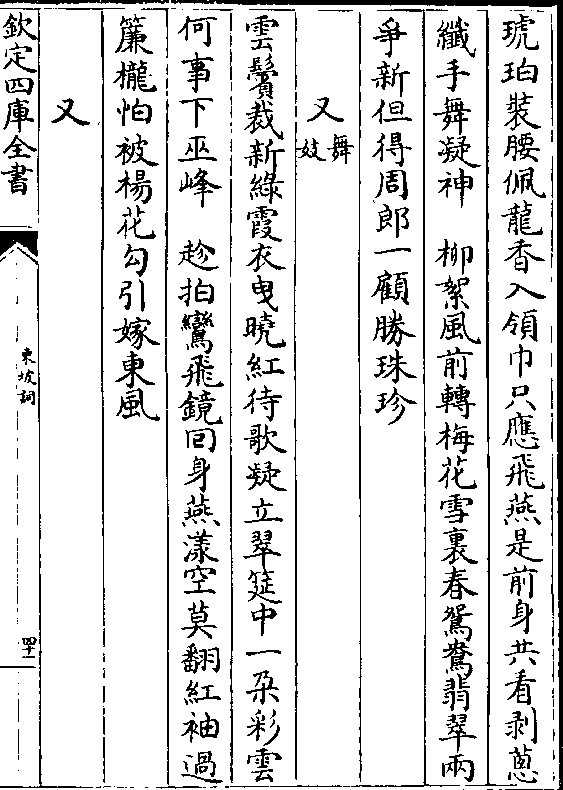 琥珀装腰佩龍香入領巾只應飛燕是前身共看剥蔥
纖手舞凝神　柳絮風前轉梅花雪裏春鴛鴦翡翠兩
爭新但得周郎一顧勝珠珍
又舞妓
雲鬢裁新綠霞衣曳曉紅待歌凝立翠筵中一朶彩雲
何事下巫峰　趁拍鸞飛鏡回身燕漾空莫翻紅袖過
簾櫳怕被楊花勾引嫁東風
又
欽定四庫全書
東坡詞
四十一